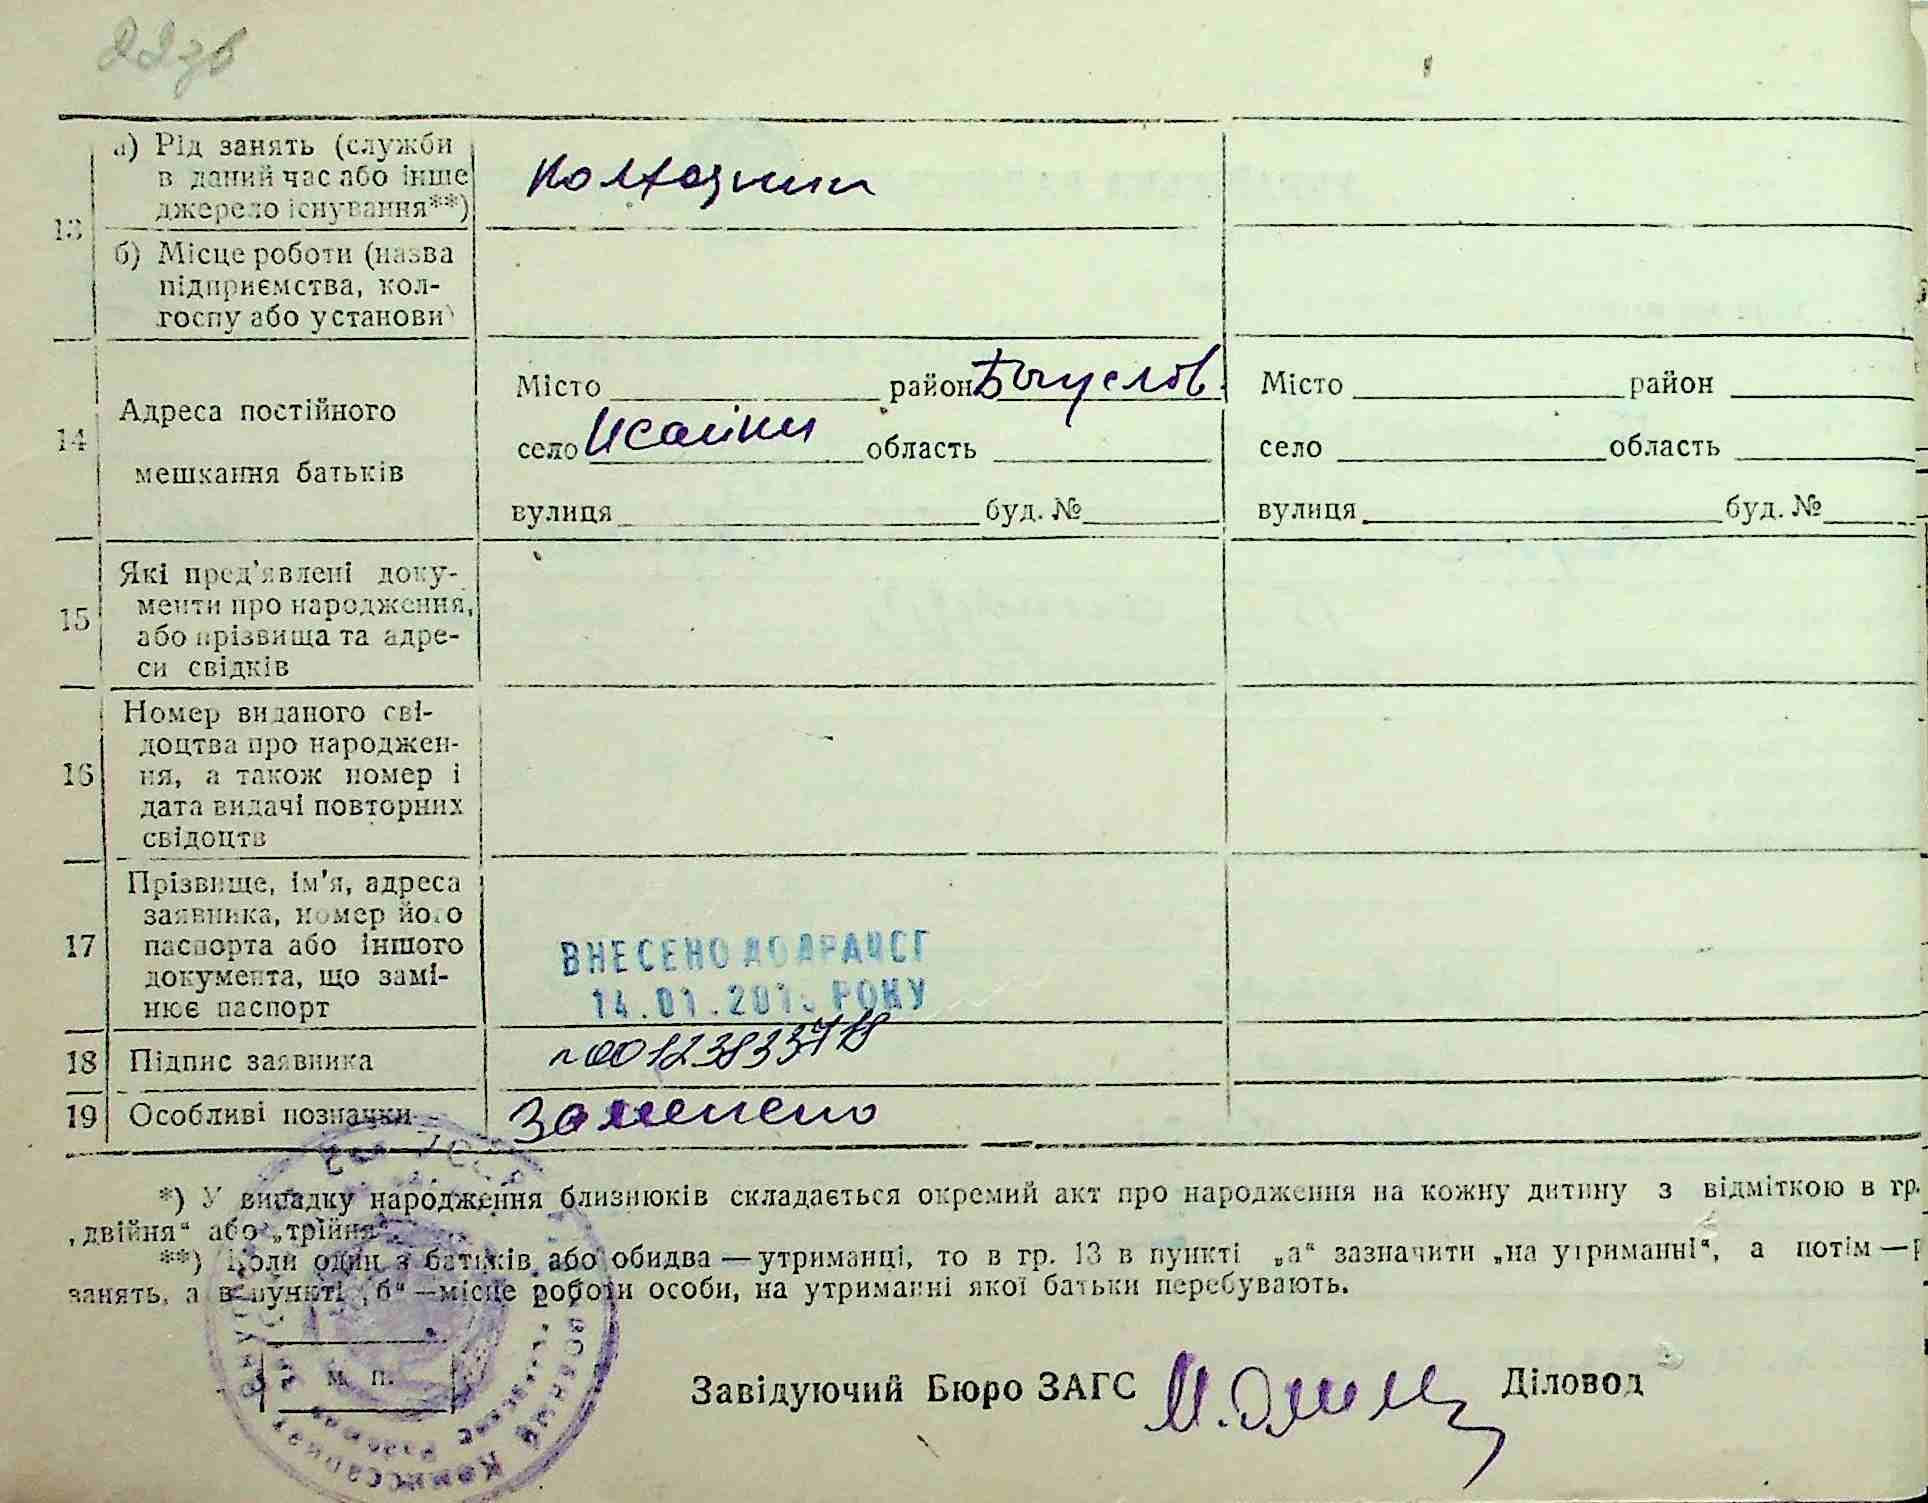 22зв
а) Рід занять (служби
в даний час або інше
джерело існування**)
колхозник
13
б) Місце роботи (назва
підприємства, кол-
госпу або установи)
14
Адреса постійного
мешкання батьків
Місто район Богуслов.
село Исайки область
вулиця буд. №
Місто район
село область
вулиця буд. №
15
Які пред'явлені доку-
менти про народження,
або прізвища та адре-
си свідків
16
Номер виданого сві-
доцтва про народжен-
ня, а також номер і
дата видачі повторних
свідоцтв
17
Прізвище, ім'я, адреса
заявника, номер його
паспорта або іншого
документа, що замі-
нює паспорт
ВНЕСЕНО ДО ДРАЦСГ
14.01. РОКУ
18 Підпис заявника
19 Особливі позначки
заменено
*) У випадку народження близнюків складається окремий акт про народження на кожну дитину з відміткою в гр.
„двійня“ або „трійня“.
**) Коли один з батьків або обидва — утриманці, то в гр. 13 в пункті „а“ зазначити „на утриманні“, а потім —
занять, а в пункті „б“ — місце роботи особи, на утриманні якої батьки перебувають.
м. п.
Завідуючий Бюро ЗАГС
Діловод
Комиссариат